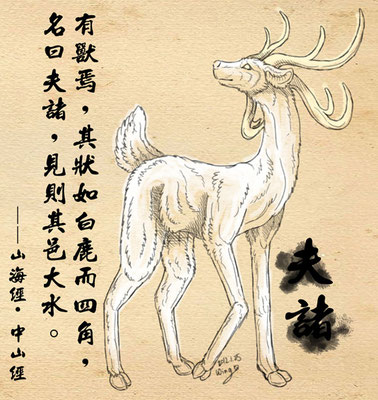 有獸焉，其狀如白鹿而四角，
名曰夫諸，見則其邑大水。
——山海經·中山經
夫諸